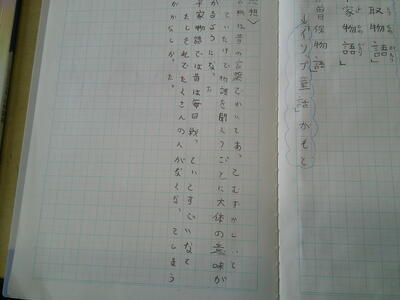 取物語」
家物語」
曽保物語
イソップ童話」がもと
想〉
物は昔の言葉でかいてあってむずかしいと
ていたけど物語を聞くごとに大体の意味が
かるようになった
平家物語では昔は毎日戦っていてすごいなと
たしそれでたくさんの人がなくなってしまう
かなしかった。